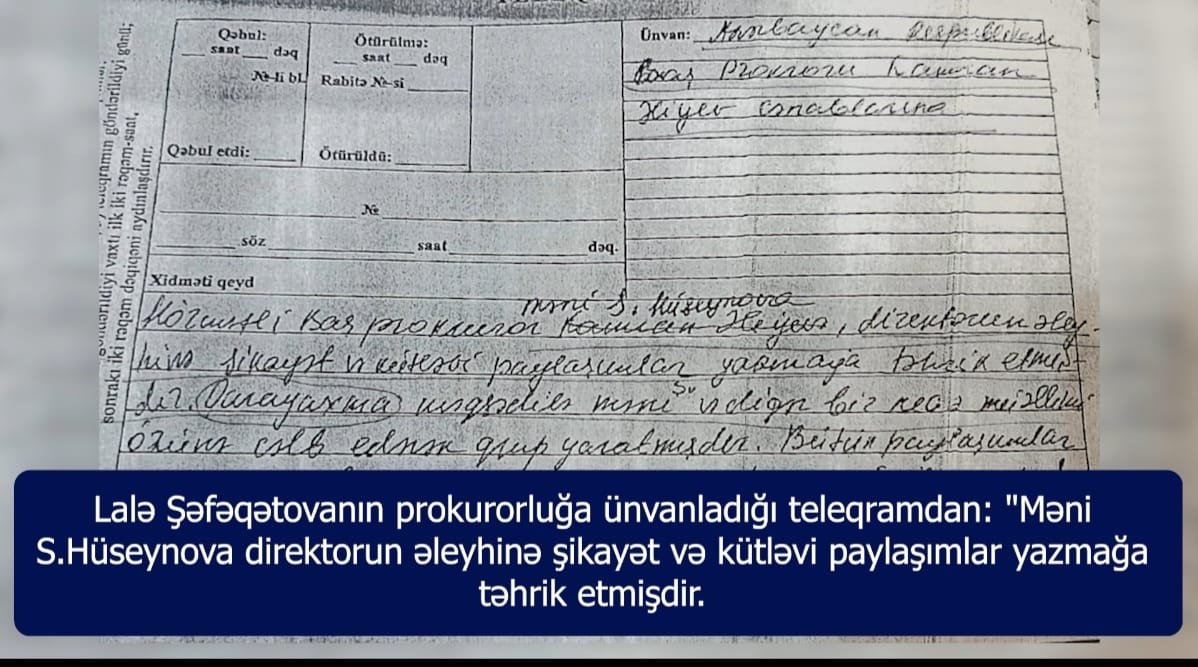 sonrakı iki rəqəm dəqiqəni aydınlaşdırır.
göndərildiyi vaxtı ilk iki rəqəm-saat,
teleqramın göndərildiyi günü;
Qəbul:
saat dəq
№-li bL
Qəbul etdi:
Ötürülmə:
saat dəq
Rabitə №-si
Ötürüldü:
Ünvan: Azərbaycan Respublikası
Baş Prokroru Kamran
Əliyev cənablarına
№
söz saat dəq.
Xidməti qeyd
məni S. Hüseynova
Hörmətli Baş prokuror Kamran Əliyev, direktorun əley-
hinə şikayət və kütləvi paylaşımlar yazmağa təhrik etmiş
dir. məni və digər bir neçə
özünə cəlb edərək qrup yaratmışdır. Bütün paylaşımlar
Lalə Şəfəqətovanın prokurorluğa ünvanladığı teleqramdan: "Məni
S.Hüseynova direktorun əleyhinə şikayət və kütləvi paylaşımlar yazmağa
təhrik etmişdir.